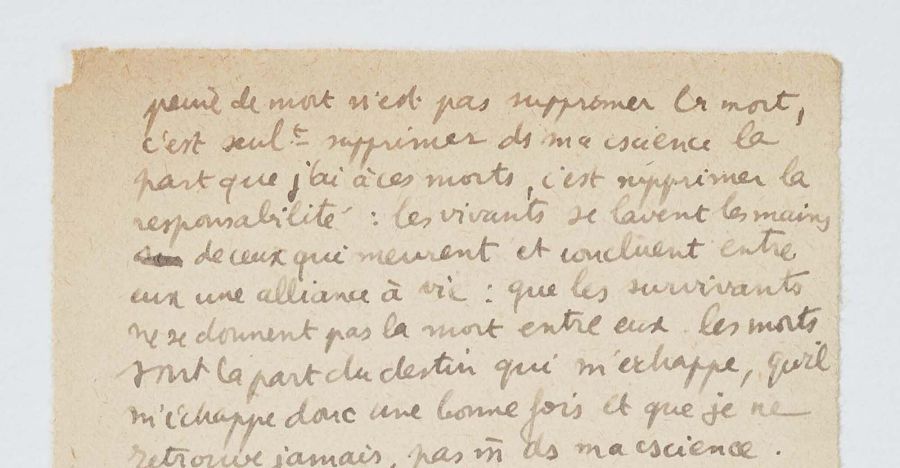 peine de mort n'est pas supprimer la mort,
c'est seulᵗ supprimer ds ma cscience la
part que j'ai à ces morts, c'est supprimer la
responsabilité : les vivants se lavent les mains
de ceux qui meurent et concluent entre
eux une alliance à vie : que les survivants
ne se donnent pas la mort entre eux. les morts
sont la part du destin qui m'échappe, qu'il
m'échappe donc une bonne fois et que je ne
retrouve jamais, pas m̄ ds ma cscience.